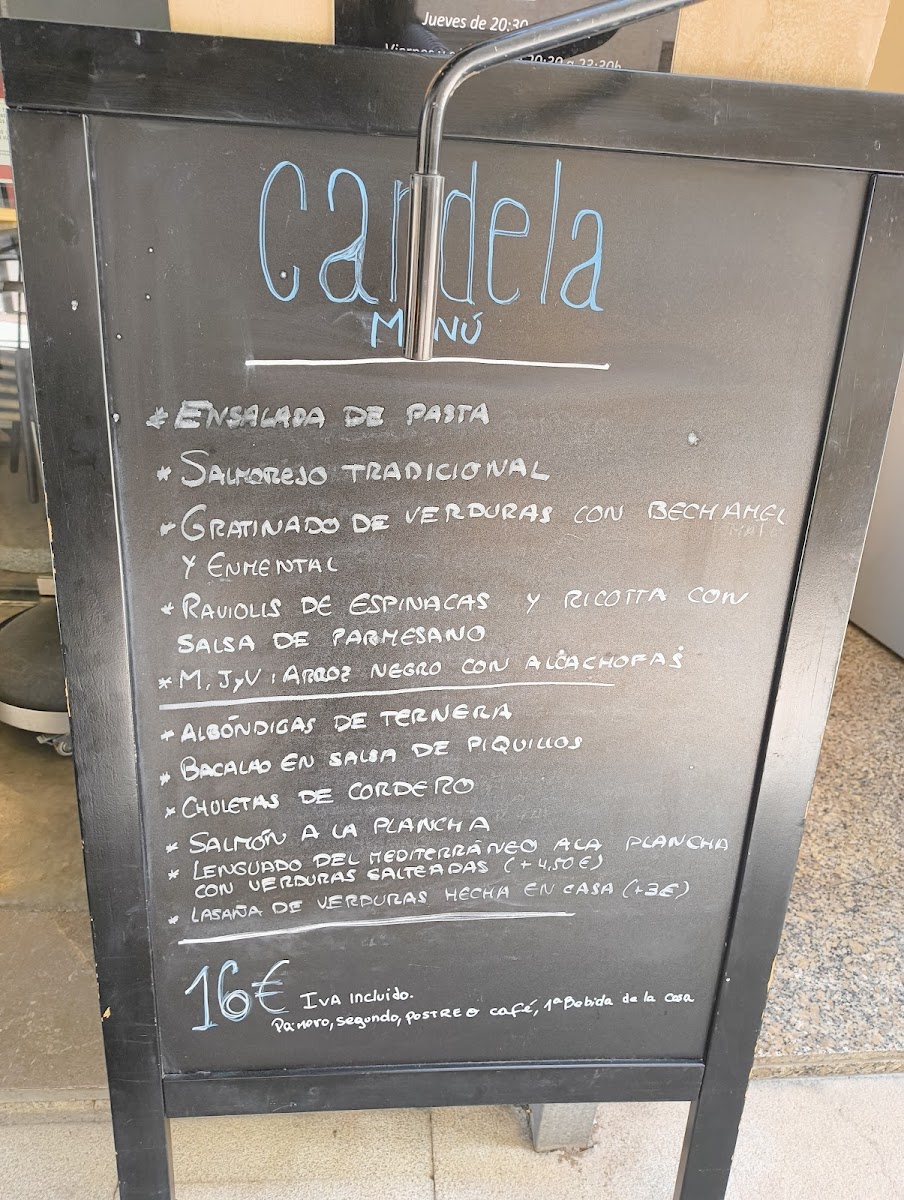 Jueves de 20:30
20:30 a 23:30h
Candela
MENÚ
* ENSALADA DE PASTA
* SALMOREJO TRADICIONAL
* GRATINADO DE VERDURAS CON BECHAMEL
Y ENMENTAL
* RAVIOLIS DE ESPINACAS Y RICOTTA CON
SALSA DE PARMESANO
* M, J y V: ARROZ NEGRO CON ALCACHOFAS
* ALBÓNDIGAS DE TERNERA
* BACALAO EN SALSA DE PIQUILLOS
* CHULETAS DE CORDERO
* SALMÓN A LA PLANCHA
* LENGUADO DEL MEDITERRÁNEO A LA PLANCHA
CON VERDURAS SALTEADAS (+4,50€)
* LASAÑA DE VERDURAS HECHA EN CASA (+3€)
16€ IVA Incluido.
Primero, segundo, POSTRE O café, 1ª Bebida de la casa